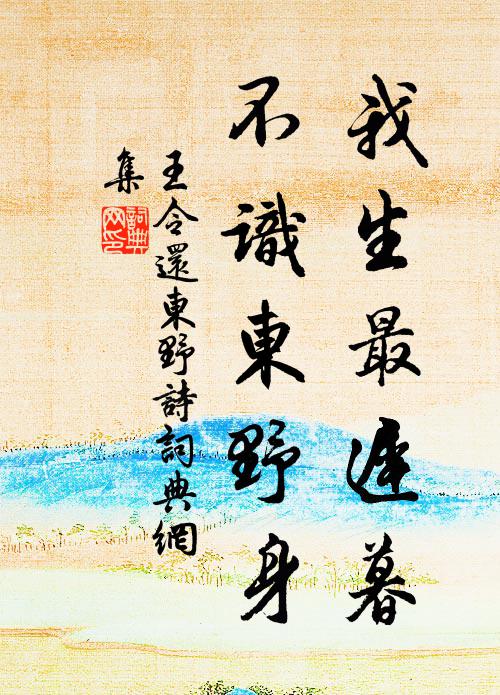 我生最遲暮
不識東野身
王令還東野詩詞典網
集
詞典网印